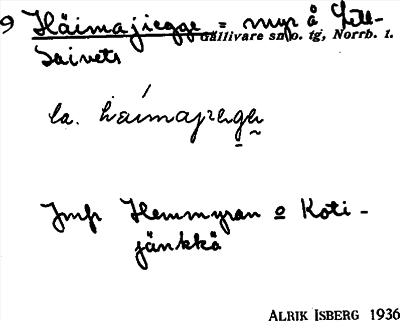 9 Häimajiegge = myr å Lill-
Gällivare sn o. tg, Norrb. l.
Saivets
la. haimajiegge
Jmfr Hemmyran o Koti-
jänkkä
ALRIK ISBERG 1936